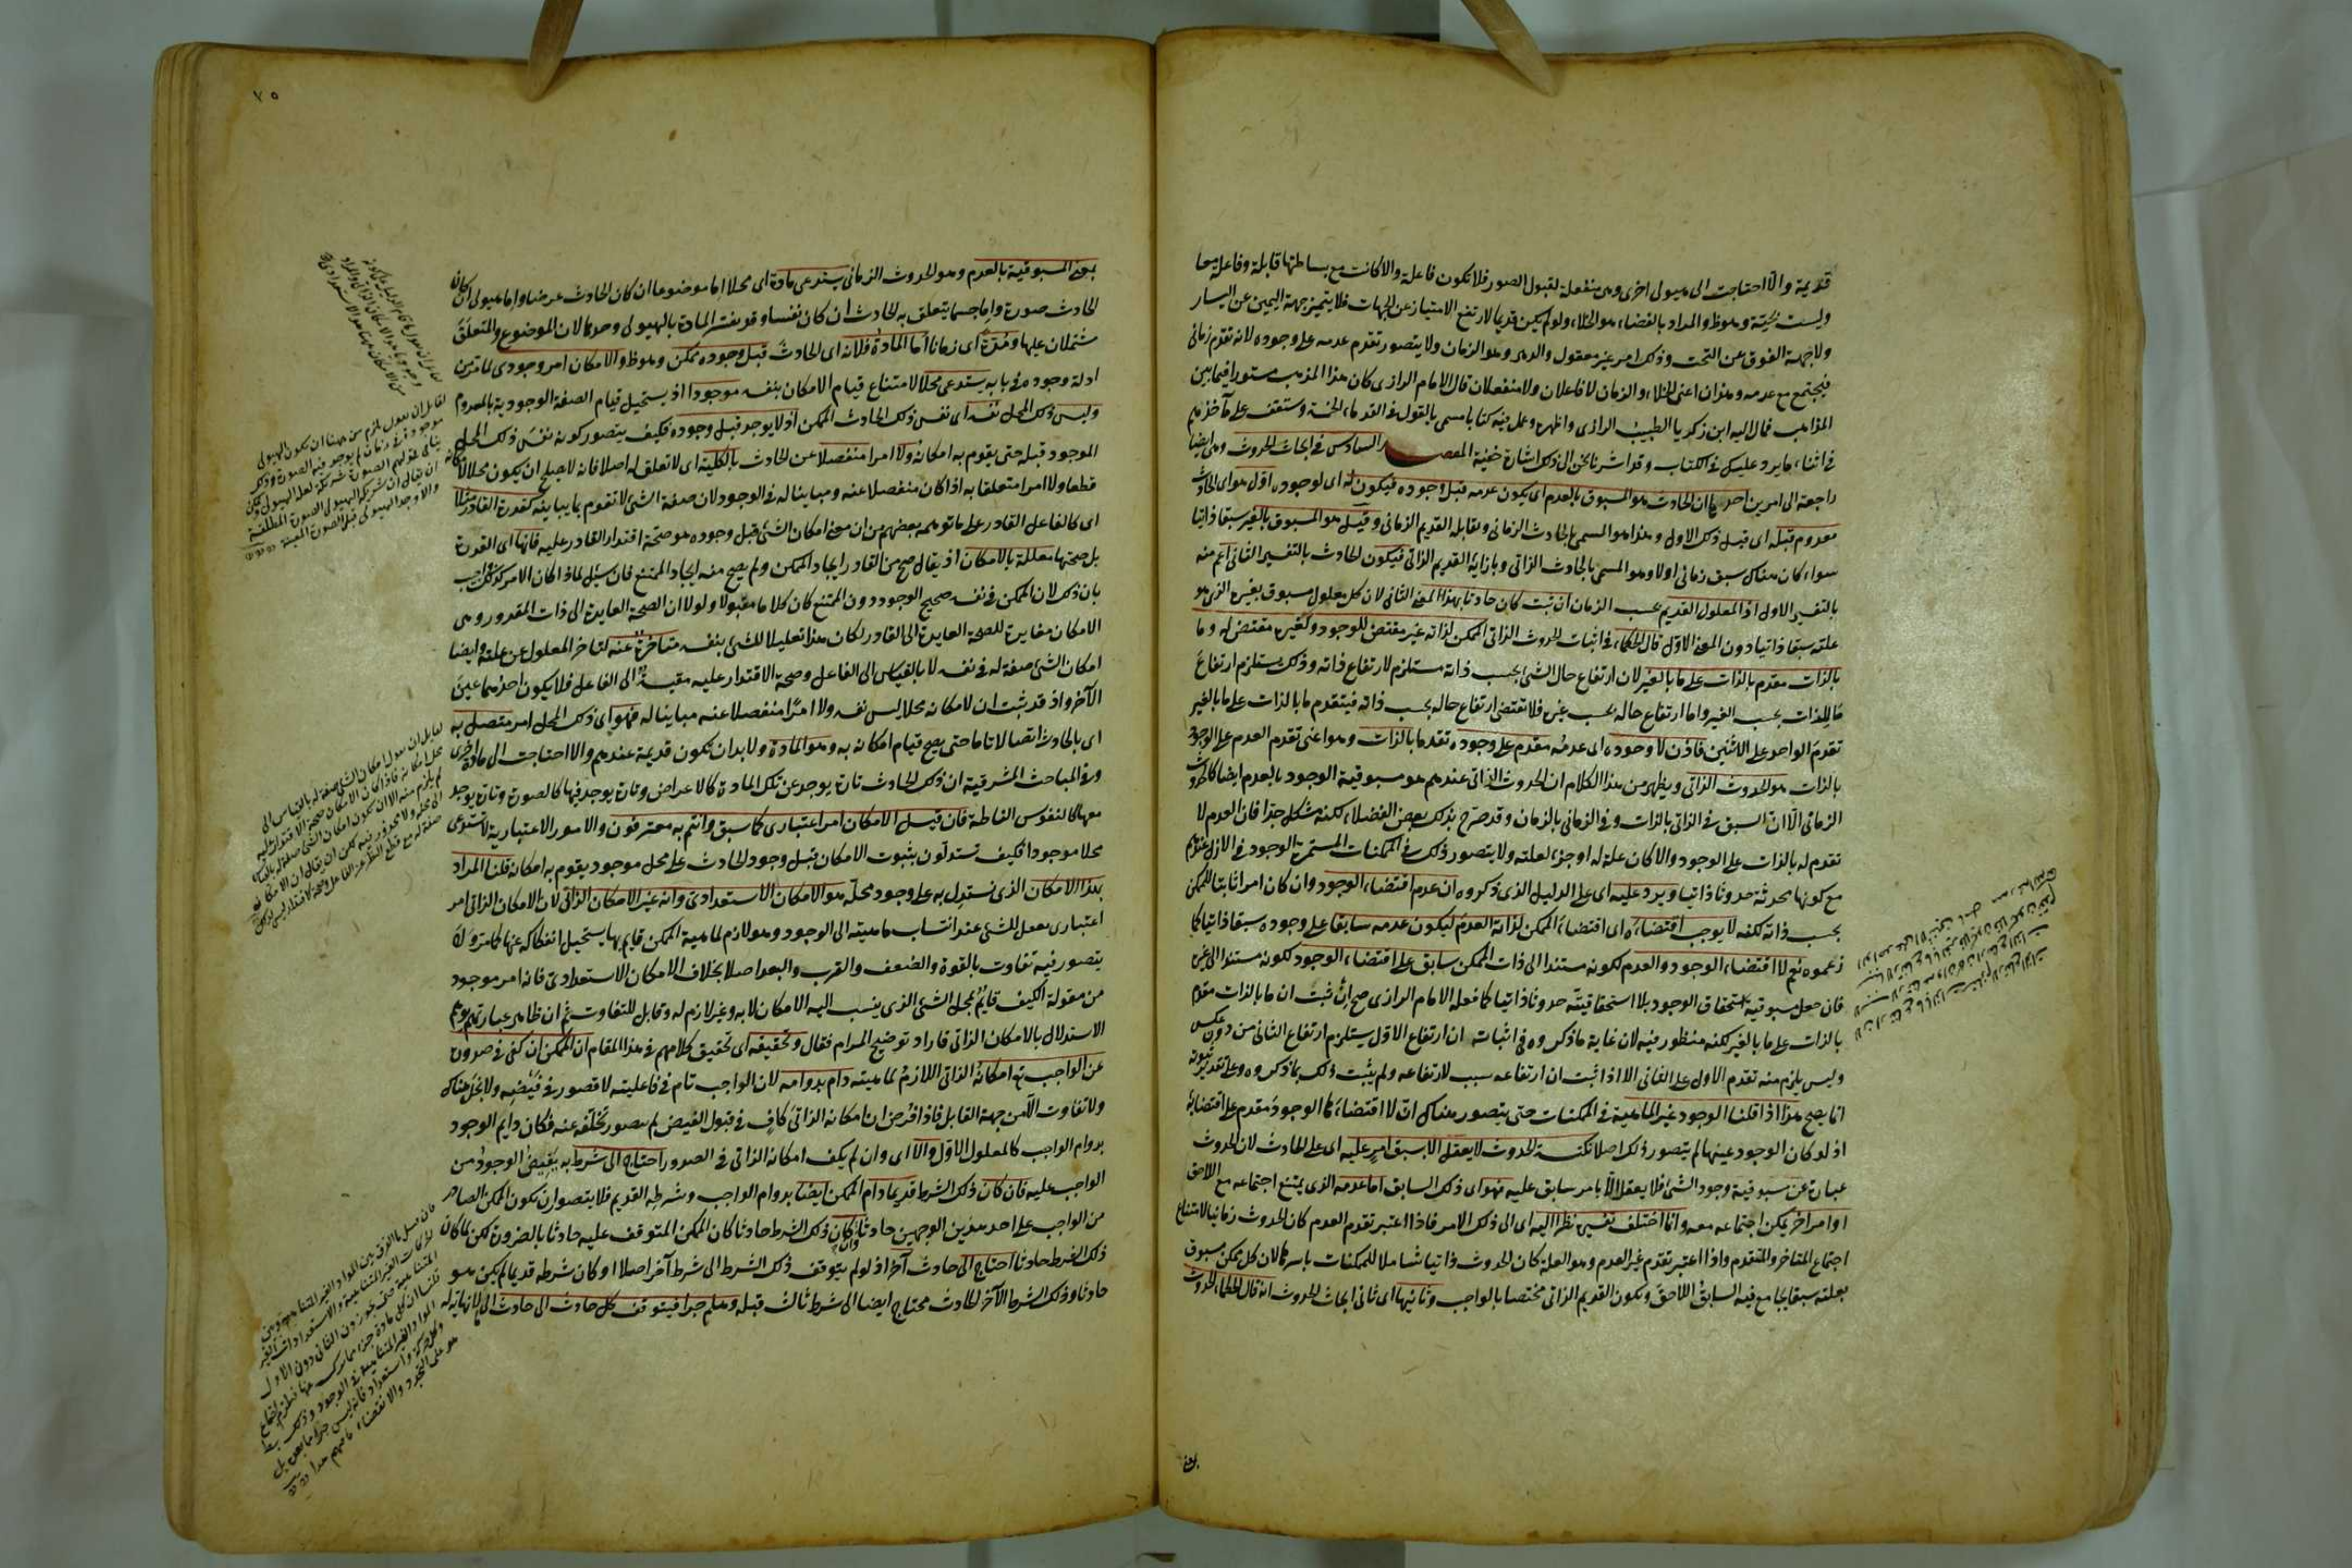 قديمة والا احتاجت الى هيولى اخرى وهى منفعلة لقبول الصور فلا تكون فاعلة والا كانت مع بساطتها قابلة وفاعلة معا
وليست بحية وهو ظ والمراد بالفضاء هو الخلاء ولو لم يكن قديما لارتفع الامتياز عن الجهات فلا يتميز جهة اليمين عن اليسار
ولا جهة الفوق عن التحت وذلك امر غير معقول والدهر وهو الزمان ولا يتصور تقدم عدمه على وجوده لانه تقدم زمانى
فيجتمع مع عدمه وهذان اعنى الخلاء والزمان لا فاعلان ولا منفعلان قال الامام الرازى كان هذا المذهب مستورا فيما بين
المذاهب فمال اليه ابن زكريا الطبيب الرازى واظهره وعمل فيه كتابا مسمى بالقول فى القدماء الخمسة وستقف على مآخذهم
فى اثناء ما يرد عليك فى الكتاب وقد اشرنا نحن الى ذلك اشارة خفية المقصد السادس فى ابحاث الحدوث وهى ايضا
راجعة الى امرين احدهما ان الحادث هو المسبوق بالعدم اى يكون عدمه قبل وجوده فيكون له اى لوجوده اول هو اى الحادث
معدوم قبله اى قبل ذلك الاول وهذا هو المسمى بالحادث الزمانى ويقابله القديم الزمانى وقيل هو المسبوق بالغير سبقا ذاتيا
سواء كان هناك سبق زمانى اولا وهو المسمى بالحادث الذاتى وبازائه القديم الذاتى فيكون الحادث بالتفسير الثانى اعم منه
بالتفسير الاول اذ المعلول القديم بحسب الزمان ان ثبت كان حادثا بهذا المعنى الثانى لان كل معلول مسبوق بغيره الذى هو
علته سبقا ذاتيا دون المعنى الاول قال الحكماء فى اثبات الحدوث الذاتى الممكن لذاته غير مقتض للوجود ولغيره مقتض له وما
بالذات مقدم بالذات على ما بالغير لان ارتفاع حال الشئ بحسب ذاته مستلزم لارتفاع ذاته وذلك يستلزم ارتفاع
ما للذات بحسب الغير واما ارتفاع حاله بحسب غيره فلا تقتضى ارتفاع حاله بحسب ذاته فيتقدم ما بالذات على ما بالغير
تقدم الواحد على الاثنين فاذن لا وجوده اى عدمه مقدم على وجوده تقدما بالذات وهو اعنى تقدم العدم على الوجود
بالذات هو الحدوث الذاتى ويظهر من هذا الكلام ان الحدوث الذاتى عندهم هو مسبوقية الوجود بالعدم ايضا كالحدوث
الزمانى الا ان السبق فى الذاتى بالذات وفى الزمانى بالزمان وقد صرح بذلك بعض الفضلاء لكنه مشكل جدا فان العدم لا
تقدم له بالذات على الوجود والا كان علة له او جزءا لعلته ولا يتصور ذلك فى الممكنات المستمرة الوجود فى الازل عندهم
مع كونها محدثة حدوثا ذاتيا ويرد عليه اى على الدليل الذى ذكروه ان عدم اقتضاء الوجود وان كان امرا ثابتا للممكن
بحسب ذاته لكنه لا يوجب اقتضاءه اى اقتضاء الممكن لذاته العدم ليكون عدمه سابقا على وجوده سبقا ذاتيا كما
زعموه نعم لا اقتضاء الوجود والعدم لكونه مستندا الى ذات الممكن سابق على اقتضاء الوجود لكونه مستندا الى غيره
فان جعل مسبوقية استحقاق الوجود بلا استحقاقيته حدوثا ذاتيا كما فعله الامام الرازى صح ان ثبت ان ما بالذات مقدم
بالذات على ما بالغير لكنه منظور فيه لان غاية ما ذكروه فى اثباته ان ارتفاع الاول يستلزم ارتفاع الثانى من دون عكس
وليس يلزم منه تقدم الاول على الثانى الا اذا ثبت ان ارتفاعه سبب لارتفاعه ولم يثبت ذلك بما ذكروه وعلى تقدير ثبوته
انما يصح هذا اذا قلنا الوجود غير الماهية فى الممكنات حتى يتصور هناك ان لا اقتضاءها الوجود مقدم على اقتضائه
اذ لو كان الوجود عينها لم يتصور ذلك اصلا نكتة الحدوث لا يعقل الا بسبق امر عليه اى على الحادث لان الحدوث
عبارة عن مسبوقية وجود الشئ فلا يعقل الا بامر سابق عليه فهو اى ذلك السابق اما عدمه الذى يمتنع اجتماعه مع اللاحق
او امر آخر يمكن اجتماعه معه وانما اختلف تفسيره نظرا اليه اى الى ذلك الامر فاذا اعتبر تقدم العدم كان الحدوث زمانيا لامتناع
اجتماع المتاخر والمتقدم واذا اعتبر تقدم غير العدم وهو العلة كان الحدوث ذاتيا شاملا للممكنات باسرها لان كل ممكن مسبوق
بعلته سبقا يجامع فيه السابق اللاحق ويكون القديم الذاتى مختصا بالواجب وثانيها اى ثانى ابحاث الحدوث انه قال الحكماء الحدوث
بمعنى
٧٥
بمعنى المسبوقية بالعدم وهو الحدوث الزمانى يستدعى مادة اى محلا اما موضوعا ان كان الحادث عرضا واما هيولى ان كان
الحادث صورة واما جسما يتعلق به الحادث ان كان نفسا وقد يفسر المادة بالهيولى وحدها لان الموضوع والمتعلق
مشتملان عليها ومدة اى زمانا اما المادة فلانه اى الحادث قبل وجوده ممكن وهو ظ والامكان امر وجودى لما مر من
ادلة وجوده فى بابه يستدعى محلا لامتناع قيام الامكان بنفسه موجودا اذ يستحيل قيام الصفة الوجودية بالمعدوم
وليس ذلك المحل نفسه اى نفس ذلك الحادث الممكن اذ لا يوجد قبل وجوده فكيف يتصور كونه نفس ذلك المحل
الموجود قبله حتى يقوم به امكانه ولا امرا منفصلا عن الحادث بالكلية اى لا تعلق له اصلا فانه لا يصلح ان يكون محلا لامكانه
قطعا ولا امرا متعلقا به اذا كان منفصلا عنه ومباينا له فى الوجود لان صفة الشئ لا تقوم بما يباينه كقدرة القادر مثلا
اى كالفاعل القادر على ما توهمه بعضهم من ان معنى امكان الشئ قبل وجوده هو صحة اقتدار القادر عليه فانها اى القدرة
بل صحتها معللة بالامكان اذ يقال صح من القادر ايجاد الممكن ولم يصح منه ايجاد الممتنع فان سئل لماذا كان الامر كذلك اجيب
بان ذلك لان الممكن فى نفسه صحيح الوجود دون الممتنع كان كلاما مقبولا ولولا ان الصحة العايدة الى ذات المقدور وهى
الامكان مغايرة للصحة العايدة الى القادر لكان هذا تعليلا للشئ بنفسه متاخرة عنه لتاخر المعلول عن علته وايضا
امكان الشئ صفة له فى نفسه لا بالقياس الى الفاعل وصحة الاقتدار عليه مقيسة الى الفاعل فلا يكون احدهما عين
الآخر واذ قد ثبت ان لامكانه محلا ليس نفسه ولا امرا منفصلا عنه مباينا له فهو اى ذلك المحل امر متصل به
اى بالحادث اتصالا تاما حتى يصح قيام امكانه به وهو المادة ولا بد ان تكون قديمة عندهم والا احتاجت الى مادة اخرى
وفى المباحث المشرقية ان ذلك الحادث تارة يوجد عن تلك المادة كالاعراض وتارة يوجد فيها كالصورة وتارة يوجد
معها كالنفوس الناطقة فان قيل الامكان امر اعتبارى كما سبق وانتم به معترفون والامور الاعتبارية لا تستدعى
محلا موجودا فكيف تستدلون بثبوت الامكان قبل وجود الحادث على محل موجود يقوم به امكانه قلنا المراد
بهذا الامكان الذى نستدل به على وجود محله هو الامكان الاستعدادى وانه غير الامكان الذاتى لان الامكان الذاتى امر
اعتبارى يعقل للشئ عند انتساب ماهيته الى الوجود وهو لازم لماهية الممكن قايم بها يستحيل انفكاكه عنها كما مر ولا
يتصور فيه تفاوت بالقوة والضعف والقرب والبعد اصلا بخلاف الامكان الاستعدادى فانه امر موجود
من مقولة الكيف قايم بمحل الشئ الذى ينسب اليه الامكان لا به وغير لازم له وقابل للتفاوت ثم ان ظاهر عبارتهم يوهم
الاستدلال بالامكان الذاتى فاراد توضيح المرام فقال وتحقيقه اى تحقيق كلامهم فى هذا المقام ان الممكن ان كفى فى صدوره
عن الواجب تع امكانه الذاتى اللازم لماهيته دام بدوامه لان الواجب تام فى فاعليته لا قصور فى فيضه ولا بخل هناك
ولا تفاوت الا من جهة القابل فاذا فرض ان امكانه الذاتى كاف فى قبول الفيض لم يتصور تخلفه عنه فكان دايم الوجود
بدوام الواجب كالمعلول الاول والا اى وان لم يكف امكانه الذاتى فى الصدور احتاج الى شرط به يفيض الوجود من
الواجب عليه فان كان ذلك الشرط قديما دام الممكن ايضا بدوام الواجب وشرطه القديم فلا يتصور ان يكون الممكن الصادر
من الواجب على احد هذين الوجهين حادثا وان كان ذلك الشرط حادثا كان الممكن المتوقف عليه حادثا بالضرورة لكن لما كان
ذلك الشرط حادثا احتاج الى حادث آخر اذ لو لم يتوقف ذلك الشرط الى شرط آخر اصلا او كان شرطه قديما لم يكن هو
حادثا وذلك الشرط الآخر الحادث محتاج ايضا الى شرط ثالث قبله وهلم جرا فيتوقف كل حادث الى حادث الى لا نهاية له
لقايل ان يقول يلزم من ههنا ان يكون الهيولى
لقايل ان يقول امكان الشئ صفة له بالقياس الى